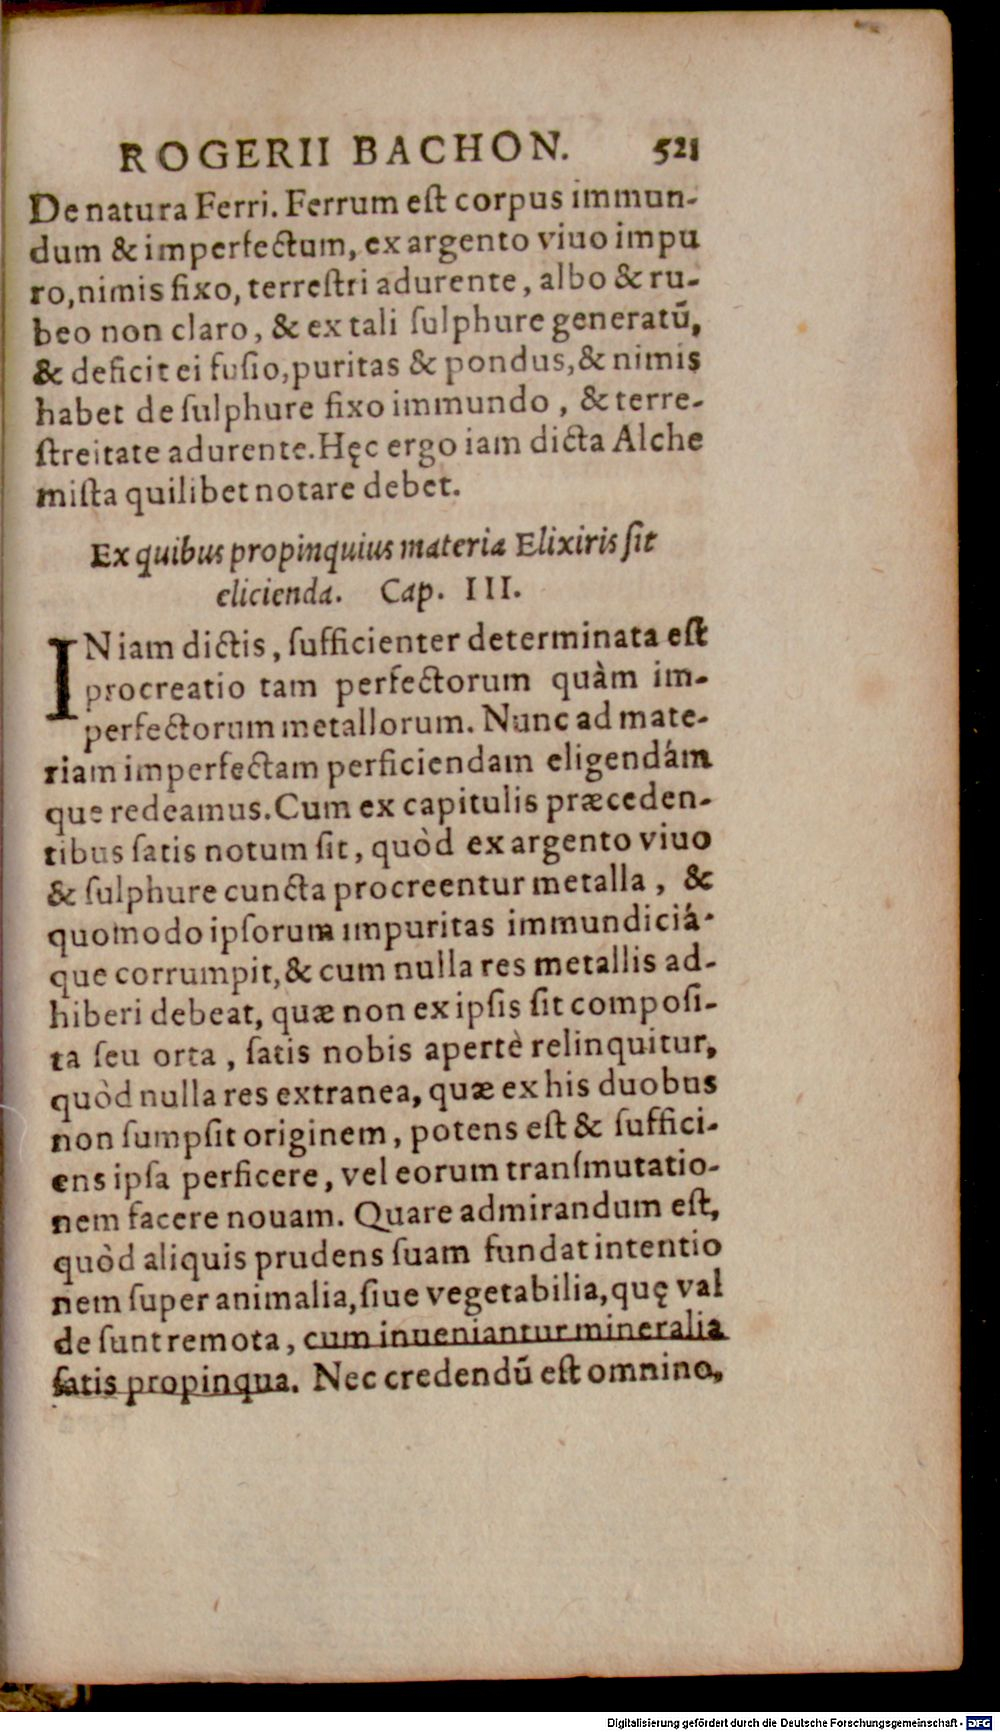 ROGERII BACHON. 521
De natura Ferri. Ferrum eſt corpus immun-
dum & imperfectum, ex argento viuo impu
ro, nimis fixo, terreſtri adurente, albo & ru-
beo non claro, & ex tali ſulphure generatũ,
& deficit ei fuſio, puritas & pondus, & nimis
habet de ſulphure fixo immundo, & terre-
ſtreitate adurente. Hęc ergo iam dicta Alche
miſta quilibet notare debet.
Ex quibus propinquius materia Elixiris ſit
elicienda. Cap. III.
IN iam dictis, ſufficienter determinata eſt
procreatio tam perfectorum quàm im-
perfectorum metallorum. Nunc ad mate-
riam imperfectam perficiendam eligendám
que redeamus. Cum ex capitulis præceden-
tibus ſatis notum ſit, quòd ex argento viuo
& ſulphure cuncta procreentur metalla, &
quomodo ipſorum impuritas immundiciá-
que corrumpit, & cum nulla res metallis ad-
hiberi debeat, quæ non ex ipſis ſit compoſi-
ta ſeu orta, ſatis nobis apertè relinquitur,
quòd nulla res extranea, quæ ex his duobus
non ſumpſit originem, potens eſt & ſuffici-
ens ipſa perficere, vel eorum tranſmutatio-
nem facere nouam. Quare admirandum eſt,
quòd aliquis prudens ſuam fundat intentio
nem ſuper animalia, ſiue vegetabilia, quę val
de ſunt remota, cum inueniantur mineralia
ſatis propinqua. Nec credendũ eſt omnino,
Digitalisierung gefördert durch die Deutsche Forschungsgemeinschaft - DFG